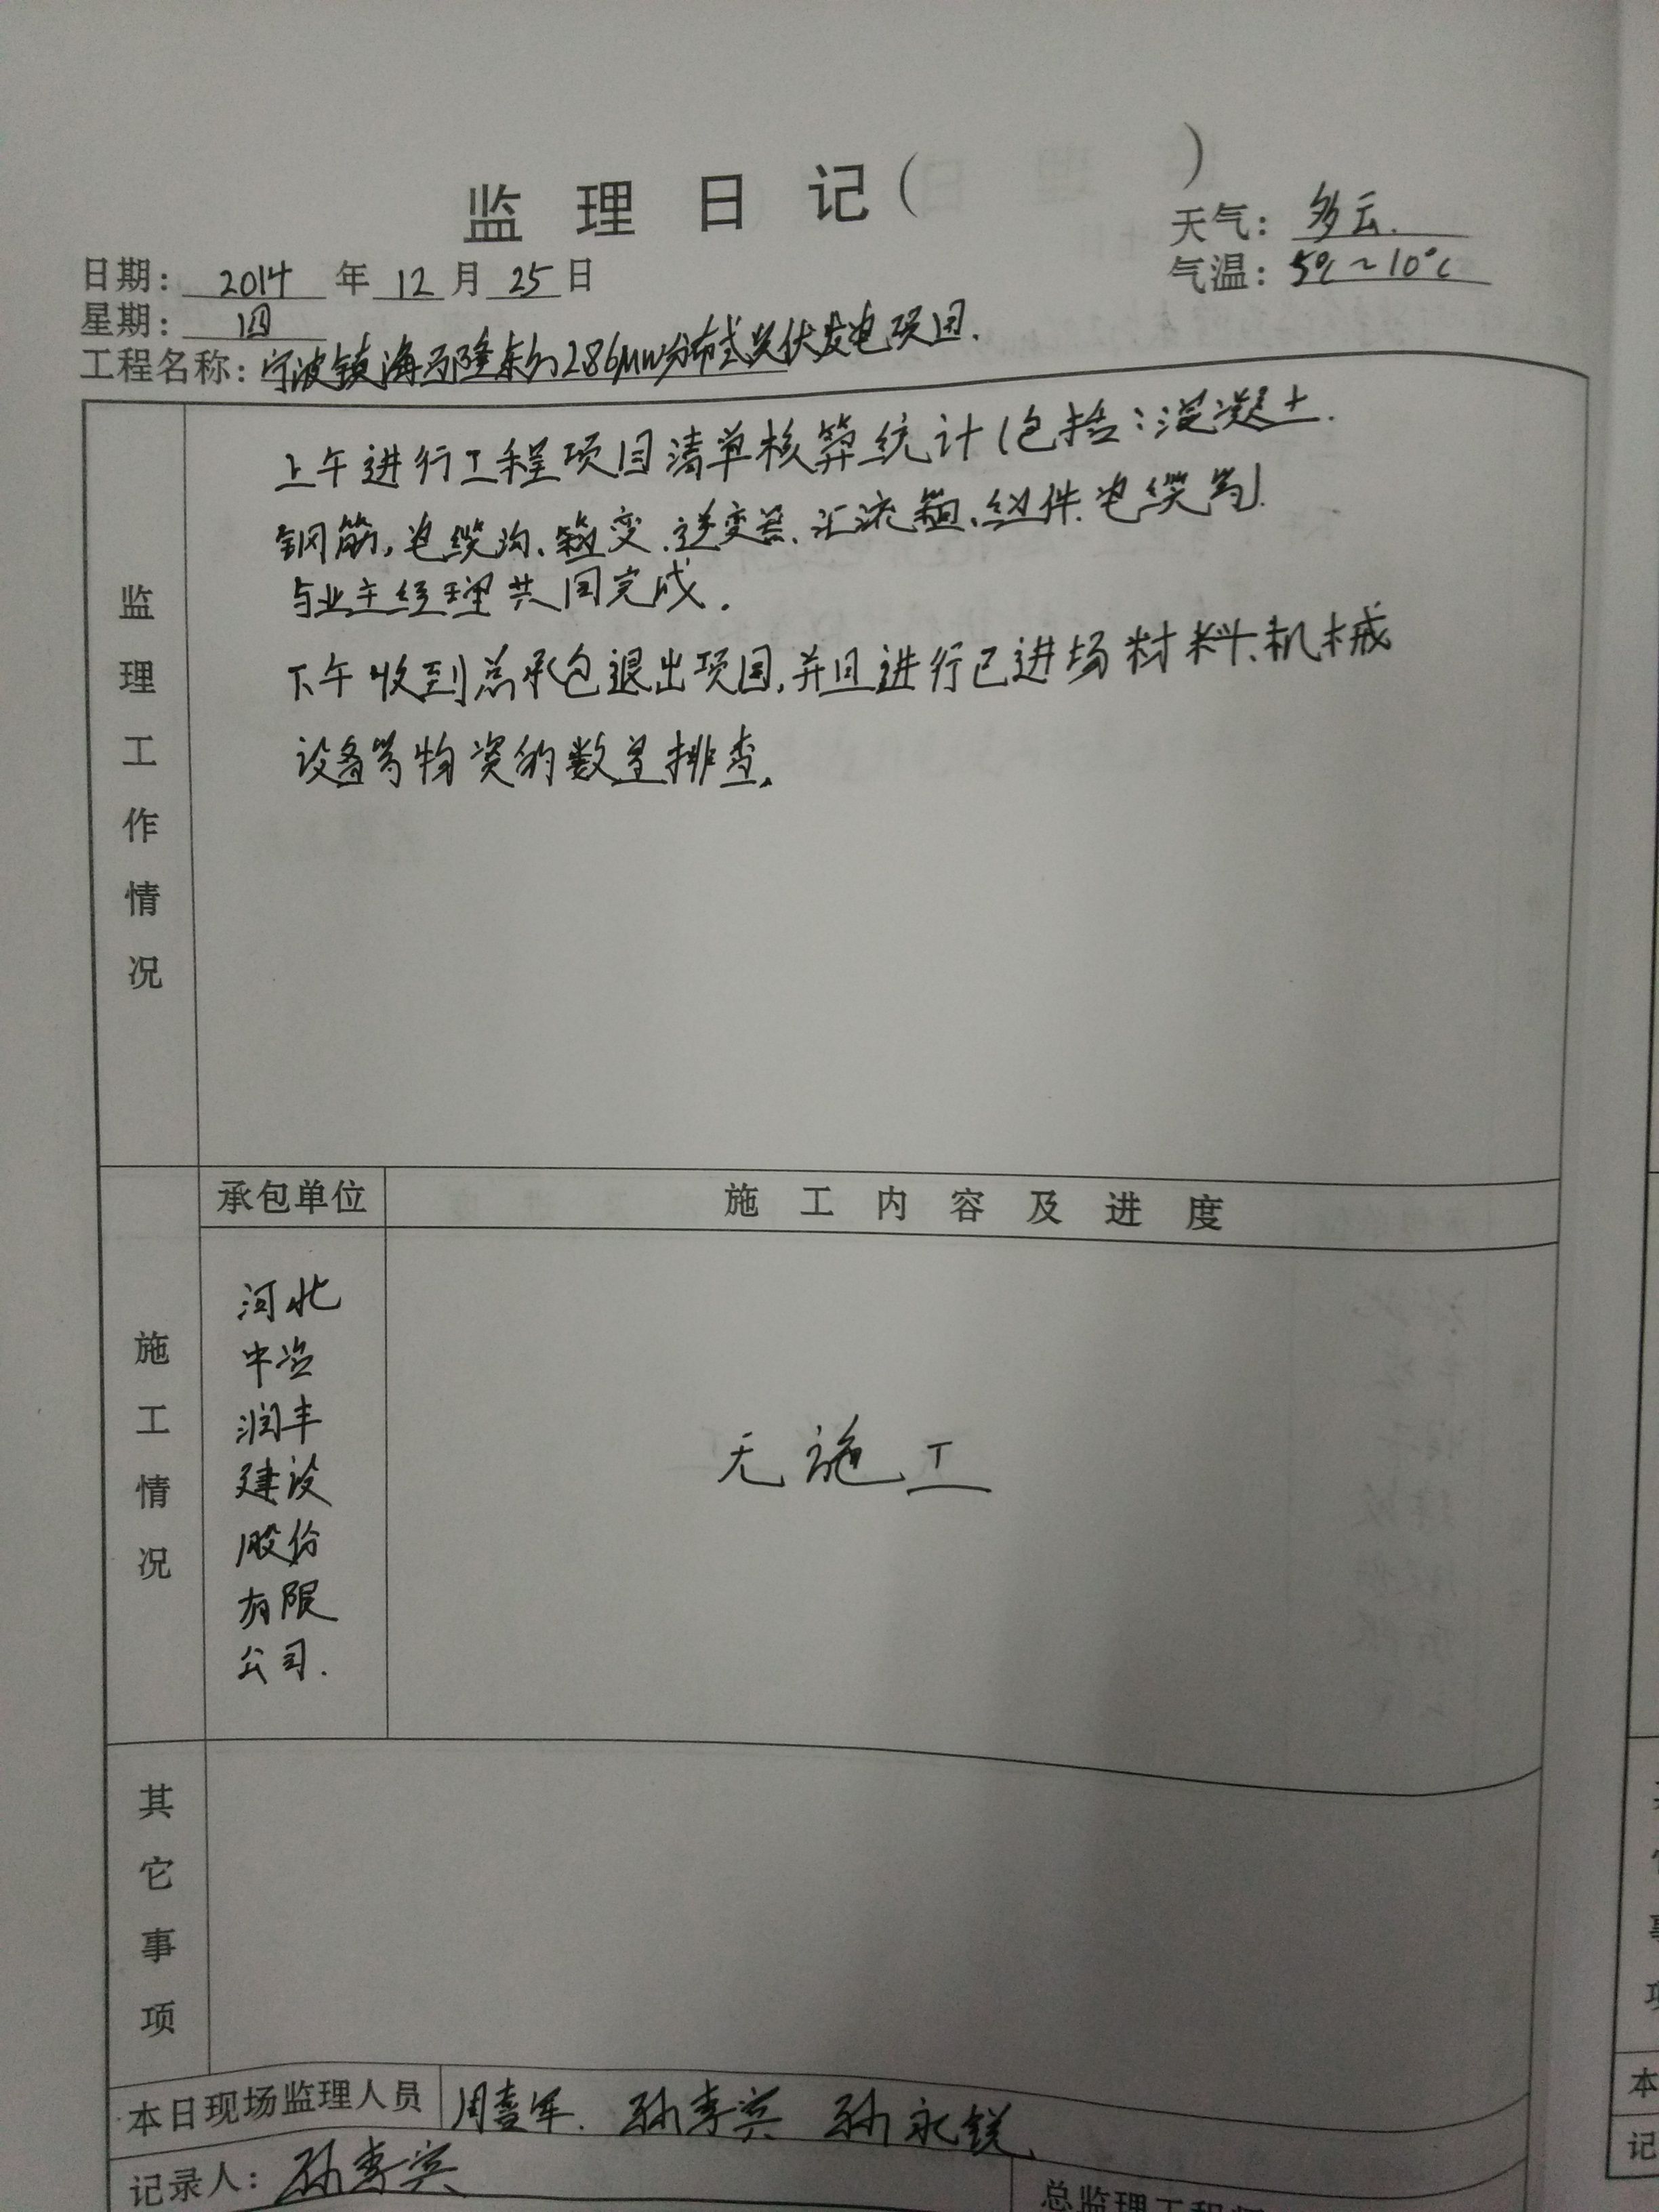 监理日记（ ）
天气：多云.
日期：2014年12月25日
气温：5℃～10℃
星期：四
工程名称：宁波镇海 隆 286MW分布式光伏发电项目.
上午进行工程项目清单核算统计(包括：混凝土.
钢筋,电缆沟、箱变.逆变器、汇流箱、组件.电缆等).
与业主经理共同完成.
下午收到总承包退出项目,并且进行已进场材料、机械
设备等物资的数量排查.
监理工作情况
承包单位
施工内容及进度
施工情况
河北
中
润丰
建设
股份
有限
公司.
无施工
其它事项
本日现场监理人员
周 军. 孙 宾 孙永锐、
记录人：孙 宾
总监理工程师
本
记